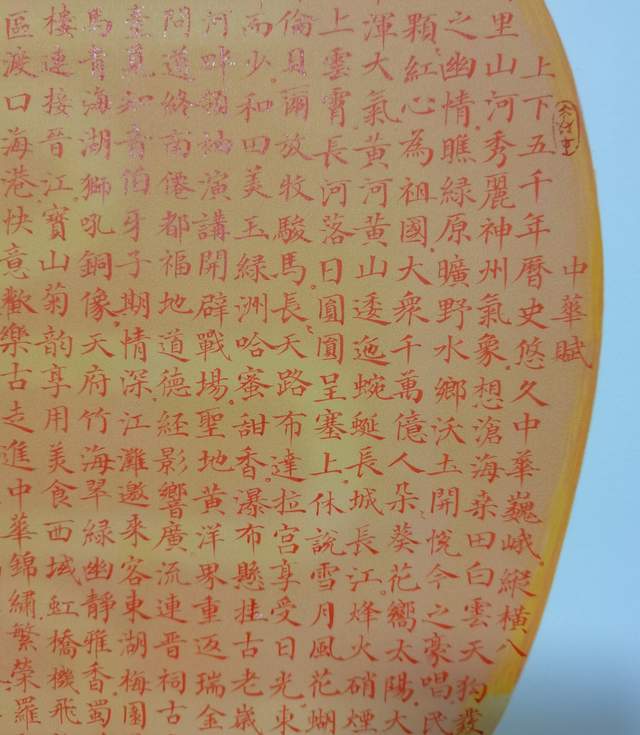 中華賦
上下五千年曆史悠久中華巍峨縱橫八
里山河秀麗神州氣象想滄海桑田白雲天狗
之幽情瞧綠原曠野水鄉沃土開悅今之豪唱民
顆紅心為祖國大眾千萬億人朵葵花嚮太陽大
渾大氣黃河黃山逶迤蜿蜒長城長江烽火硝煙
上雲霄長河落日圓圓呈塞上休說雪月風花蝴
倫貝爾放牧駿馬長天路布達拉宮享受日光東
而少和田美玉綠洲哈蜜甜香瀑布懸挂古老歲
河畔領袖演講開辟戰場聖地黃洋界重返瑞金
問道終南僊都福地道德經影響廣流連晉祠古
臺覓知音伯牙子期情深江灘邀來客東湖梅園
馬青海湖獅吼銅像天府竹海翠綠幽靜雅香蜀
樓連接晉江寶山菊韵享用美食西域虹橋機飛
區渡口海港快意歡樂古走進中華錦繡繁榮羅